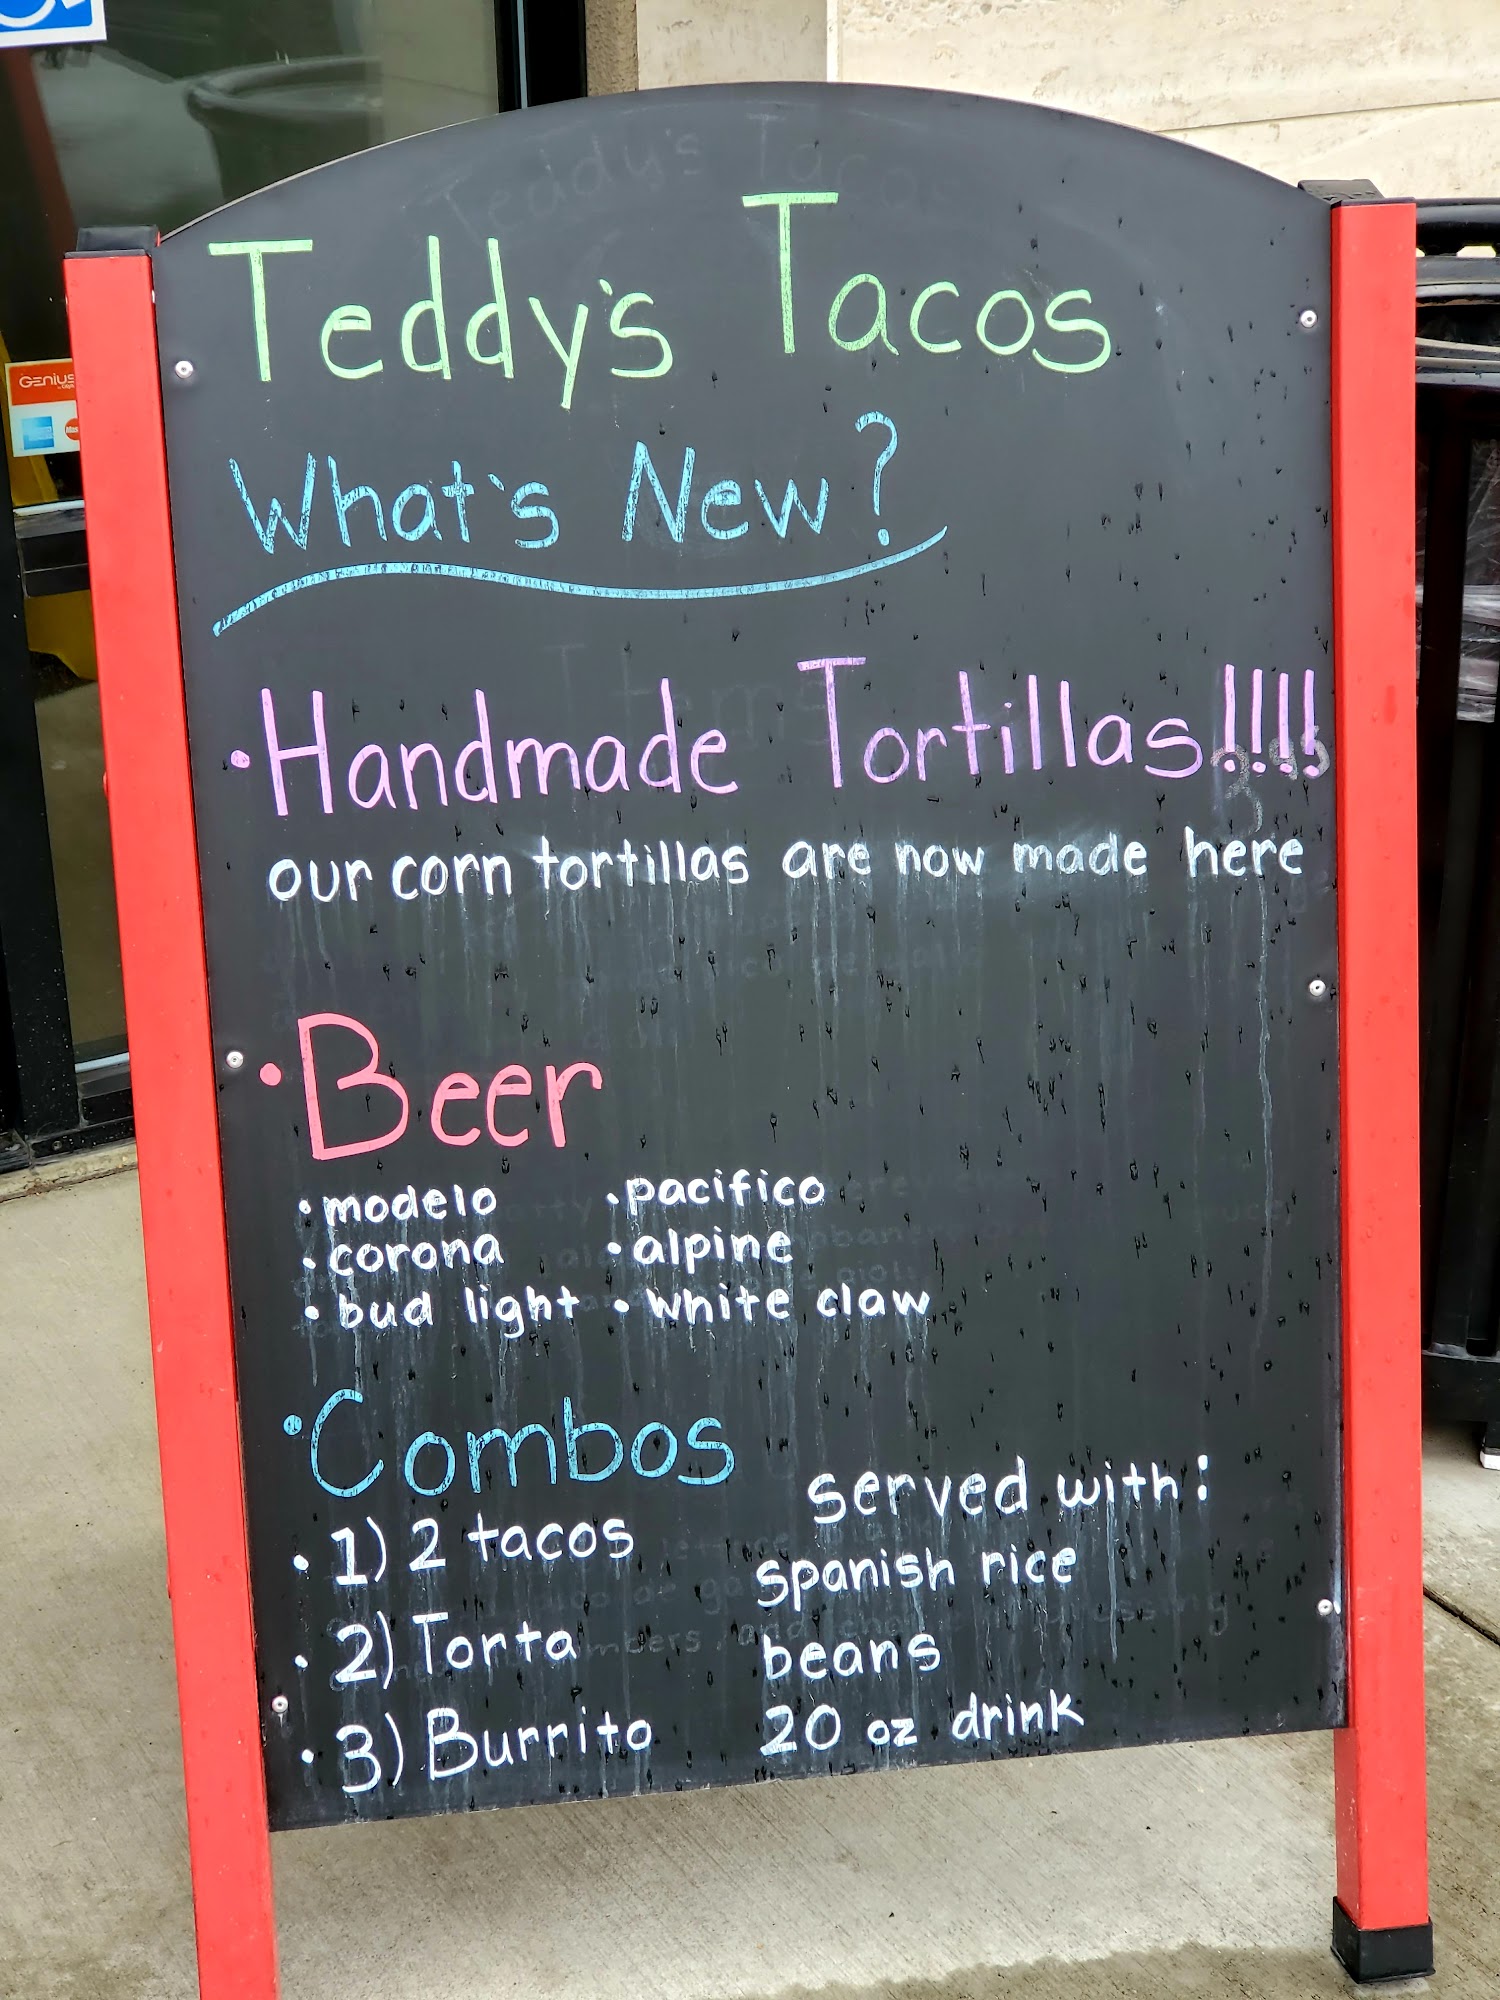 Teddy's Tacos
What's New?
• Handmade Tortillas!!!!
our corn tortillas are now made here
• Beer
• modelo • pacifico
• corona • alpine
• bud light • white claw
• Combos
served with:
• 1) 2 tacos
spanish rice
• 2) Torta
beans
• 3) Burrito
20 oz drink
GENIUS